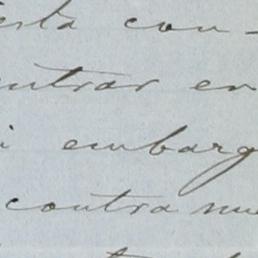 esta con-
ntrar en
embarg
contra nue